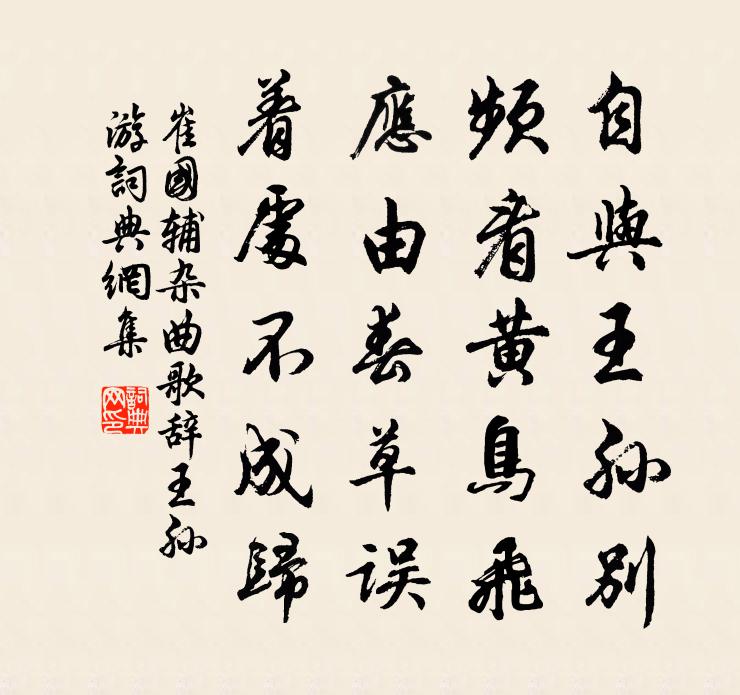 自與王孫別
頻看黄鳥飛
應由春草误
着處不成歸
崔國辅杂曲歌辞王孫
游詞典網集
詞典
网印